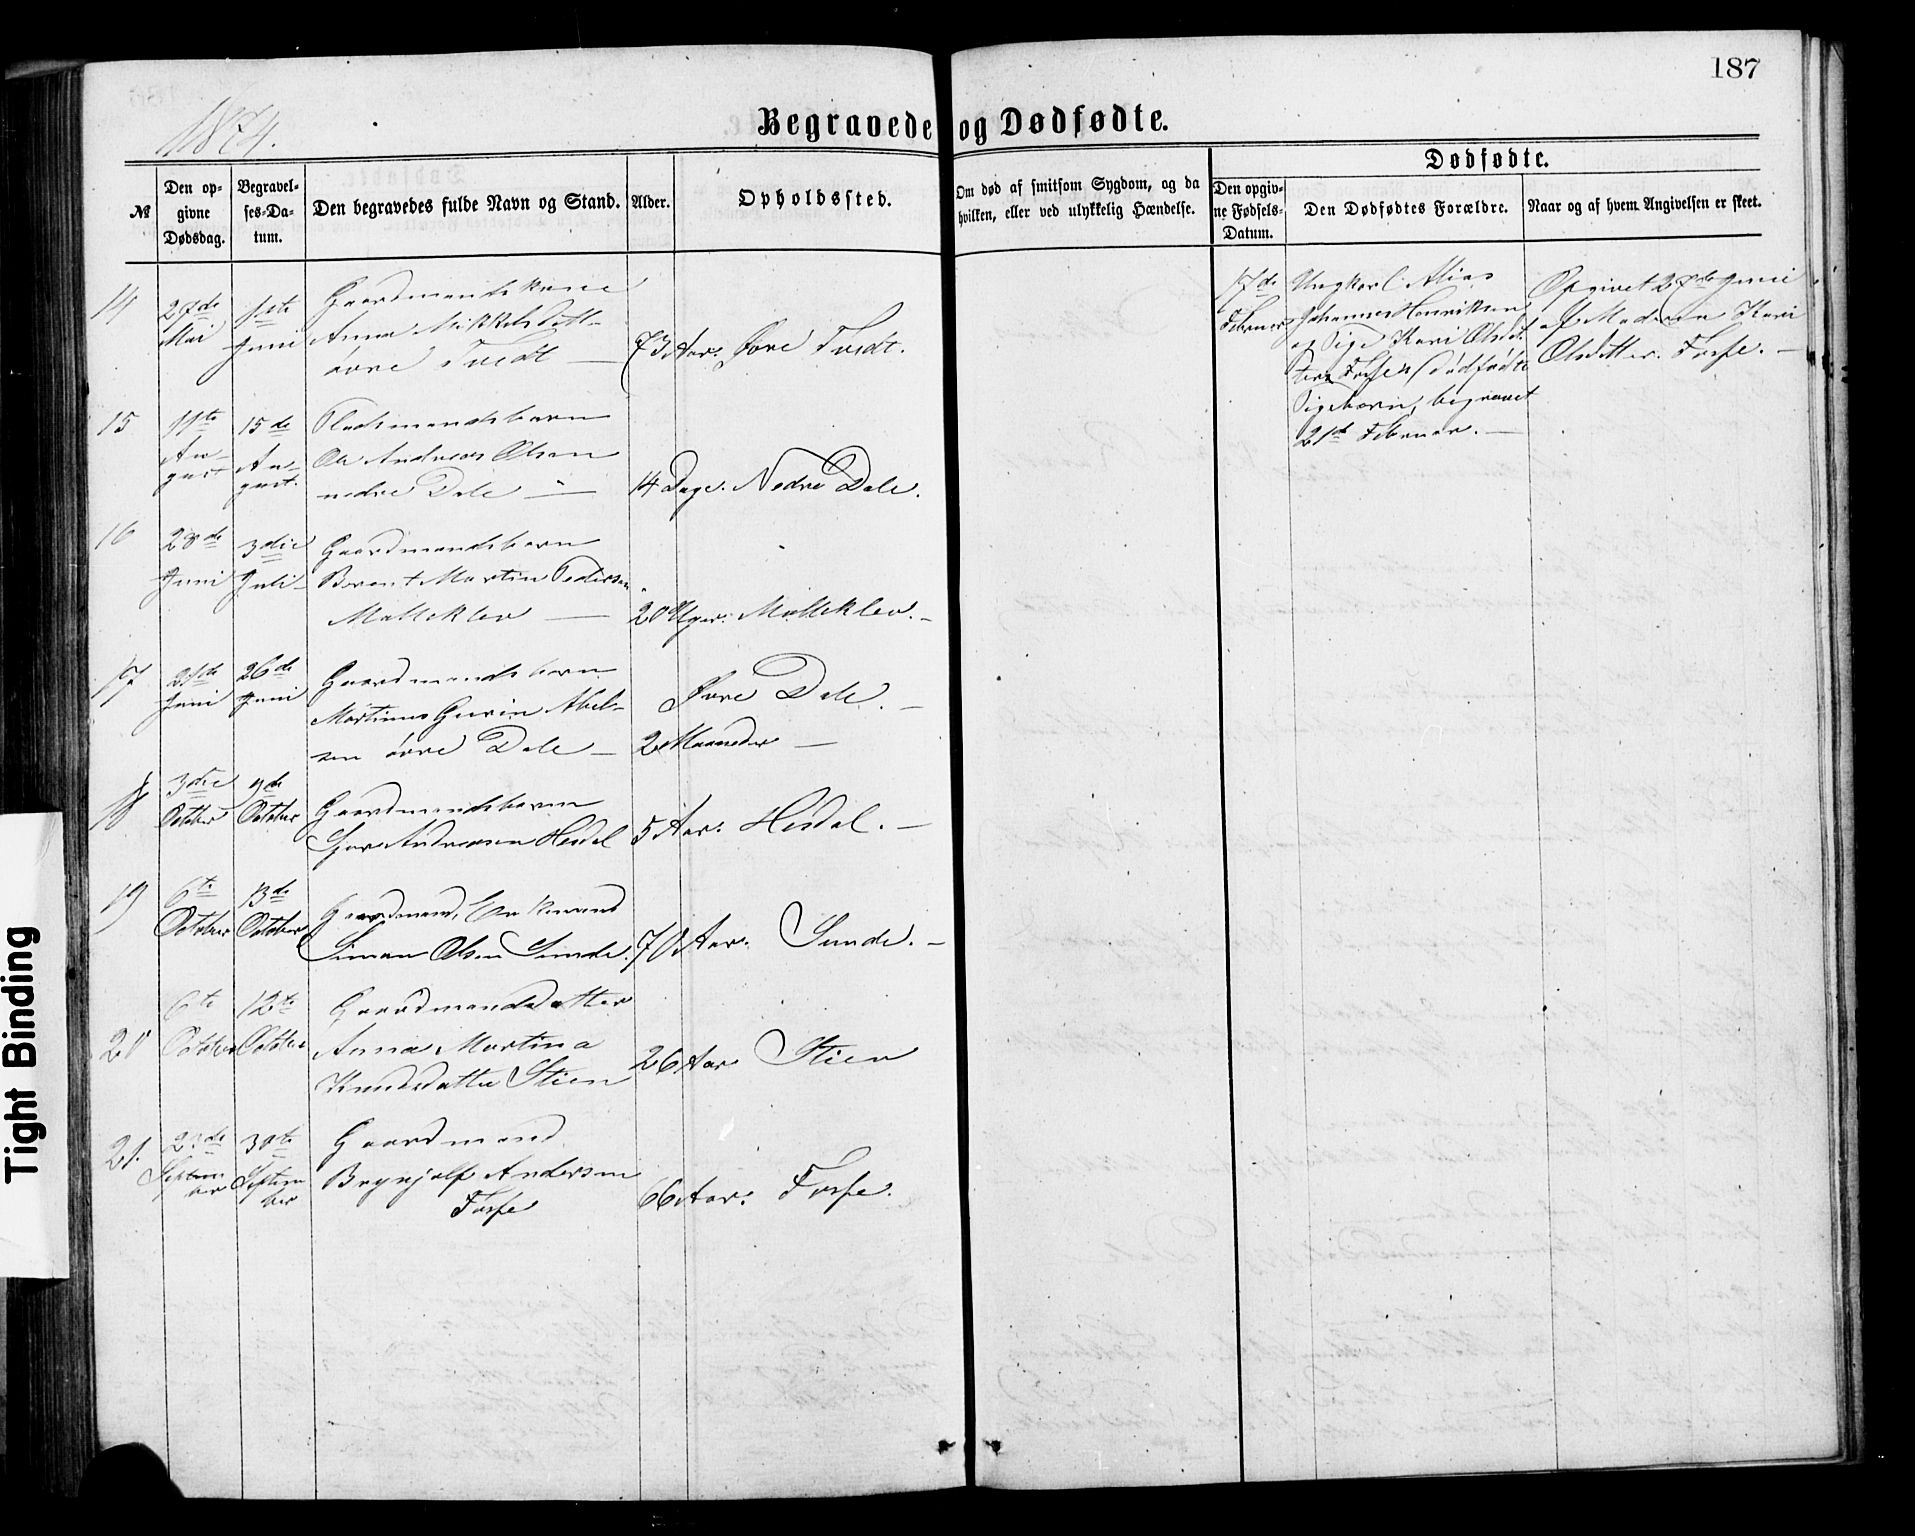 187
1874.
Begravede og Dødfødte.
Dødfødte.
№
Den op-
givne
Dødsdag.
Begravel-
ses-Da-
tum.
Den begravedes fulde Navn og Stand.
Alder.
Opholdssted.
Om død af smitsom Sygdom, og da
hvilken, eller ved ulykkelig Hændelse.
Den opgiv-
ne Fødsels-
Datum.
Den Dødfødtes Forældre.
Naar og af hvem Angivelsen er skeet.
14
27de
Mai
1ste
Juni
Gaardmandskone
Anna Mikkelsdatt-
øvre Tvedt —
73 Aar. Øvre Tvedt.
17de
Februar
Ungkarl Elias
Johannes Henriksen
og Pige Kari Olsdat-
ter Fosse, (dødfødte
Pigebarn, begravet
21de Februar. —
Opgivet 27de Juni
af Moderen Kari
Olsdatter Fosse. —
15
11te
Au-
gust
15de
Au-
gust.
Pladsmandsbarn
Ole Andreas Olsen
nedre Dale —
14 Dage. Nedre Dale.
16
28de
Juni
3die
Juli
Gaardmandsbarn
Berent Martin Pedersen
Molleklev —
20 Uger. Molleklev. —
17
21de
Juni
26de
Juni
Gaardmandsbarn
Martinus Abel-
sen øvre Dale —
Øvre Dale. —
2 Maaneder —
18
3die
October
9de
October
Gaardmandsbarn
Andreasen Hesdal
5 Aar. Hesdal. —
19
6te
October
13de
October
Gaardmand, Enkemand
Simon Olsen Sunde.
70 Aar. Sunde. —
20
6te
October
12te
October
Gaardmandsdatter
Anna Martina
Knudsdatter Stien
26 Aar Stien
21.
23de
Septem
ber
30te
Septem
ber
Gaardmand
Brynjolf Andersen
Fosse
66 Aar. Fosse.
Tight Binding